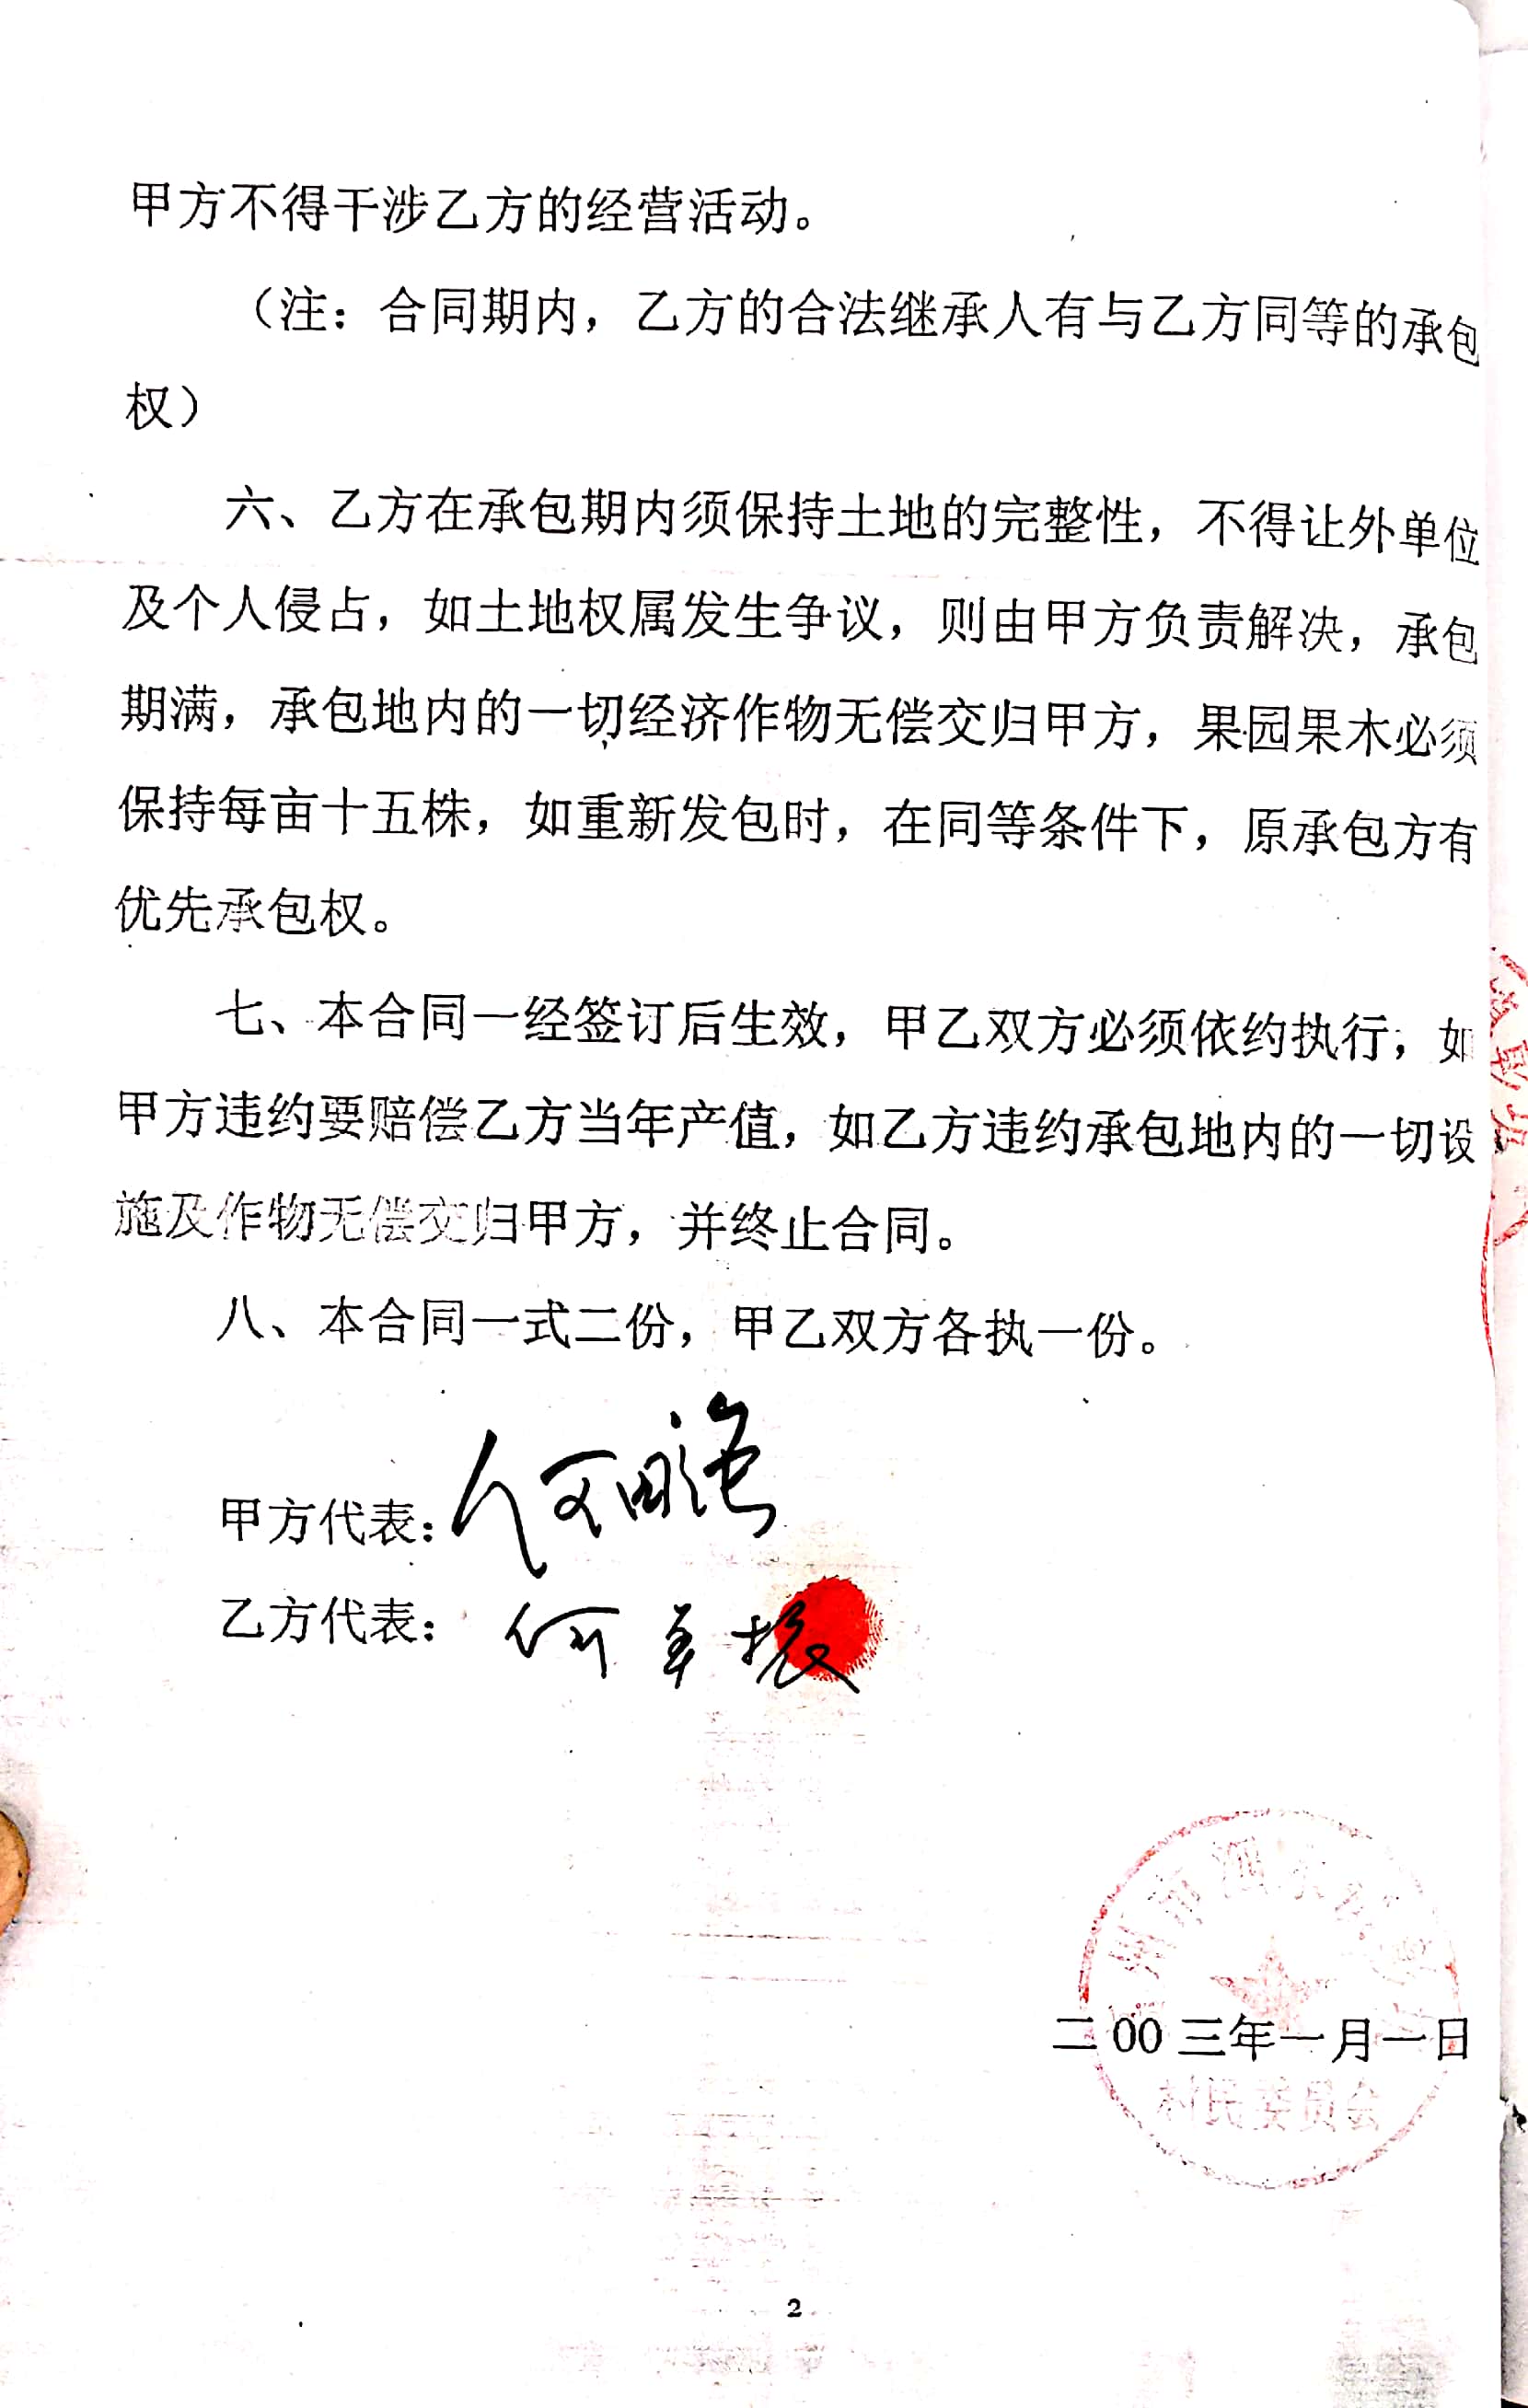 甲方不得干涉乙方的经营活动。
（注：合同期内，乙方的合法继承人有与乙方同等的承包
权）
六、乙方在承包期内须保持土地的完整性，不得让外单位
及个人侵占，如土地权属发生争议，则由甲方负责解决，承包
期满，承包地内的一切经济作物无偿交归甲方，果园果木必须
保持每亩十五株，如重新发包时，在同等条件下，原承包方有
优先承包权。
七、本合同一经签订后生效，甲乙双方必须依约执行；如
甲方违约要赔偿乙方当年产值，如乙方违约承包地内的一切设
施及作物无偿交归甲方，并终止合同。
八、本合同一式二份，甲乙双方各执一份。
甲方代表：何
乙方代表：何 振
州市
二00三年一月一日
村民委员会
2